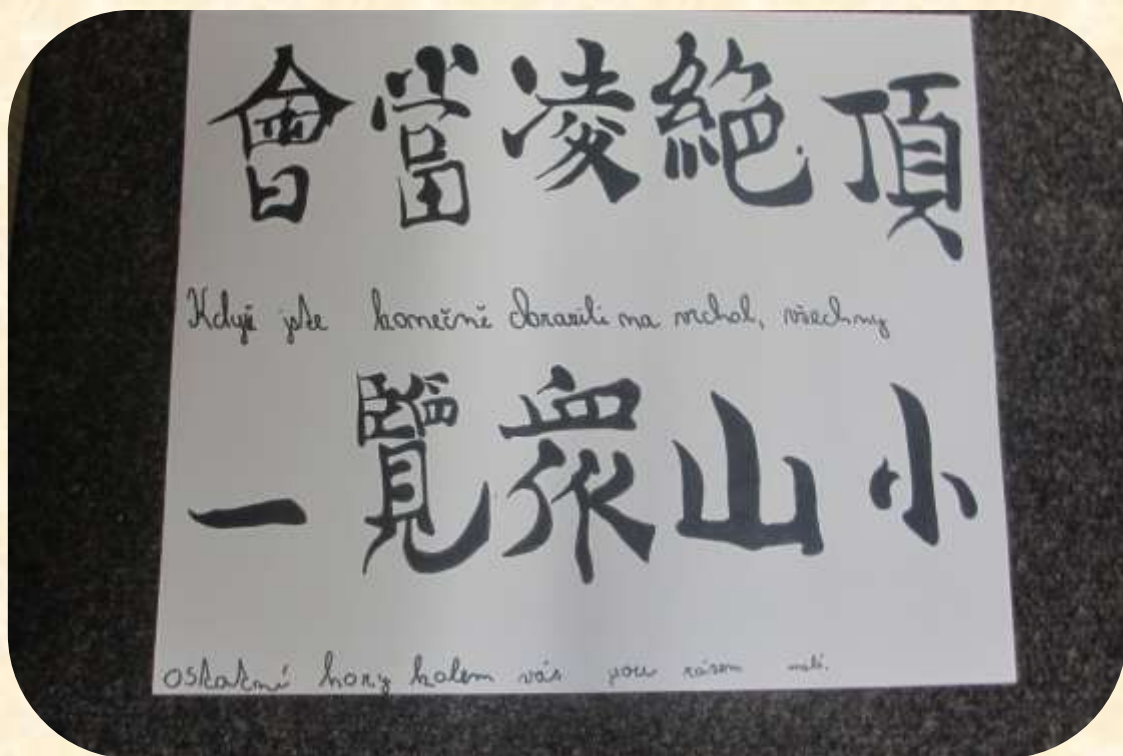 會當凌絕頂
Když jste konečně dorazili na vrchol, všechny
一覽眾山小
ostatní hory kolem vás jsou rázem malé.